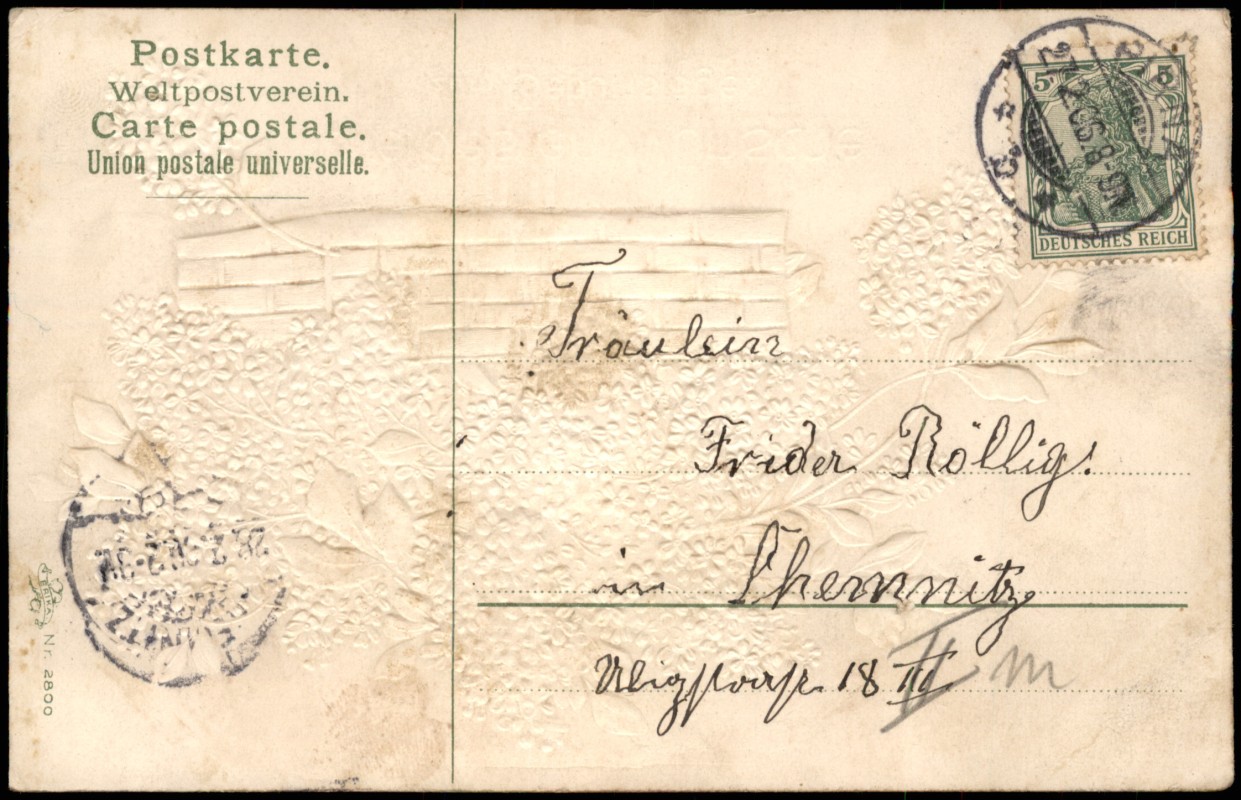 Postkarte.
Weltpostverein.
Carte postale.
Union postale universelle.
5 5
27.2.06.8-9N
DEUTSCHES REICH
Fräulein
Frider Röllig.
in Chemnitz
18 III
II m
ERIKA
Nr. 2800